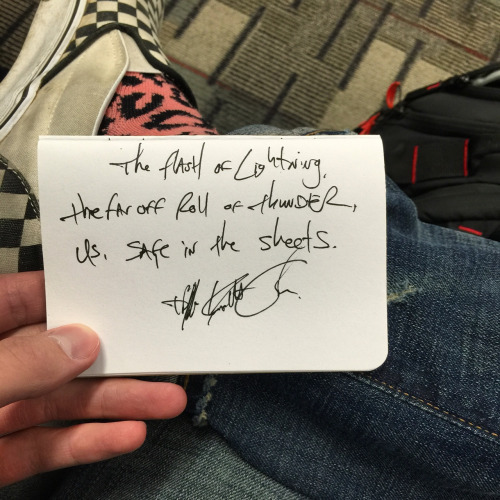 The flash of Lightning,
the far off Roll of thunDER,
us, safe in the sheets.